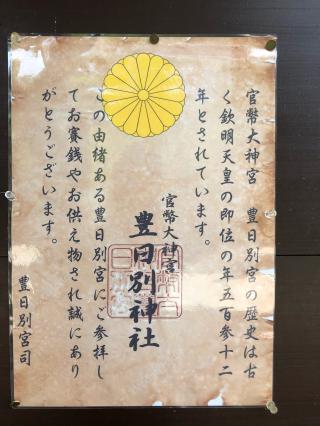 官幣大神宮　豊日別宮の歴史は古
く欽明天皇の即位の年五百参十二
年とされています。
官幣大神宮
豊日別神社
この由緒ある豊日別宮にご参拝し
てお賽銭やお供え物され誠にあり
がとうございます。
豊日別宮司